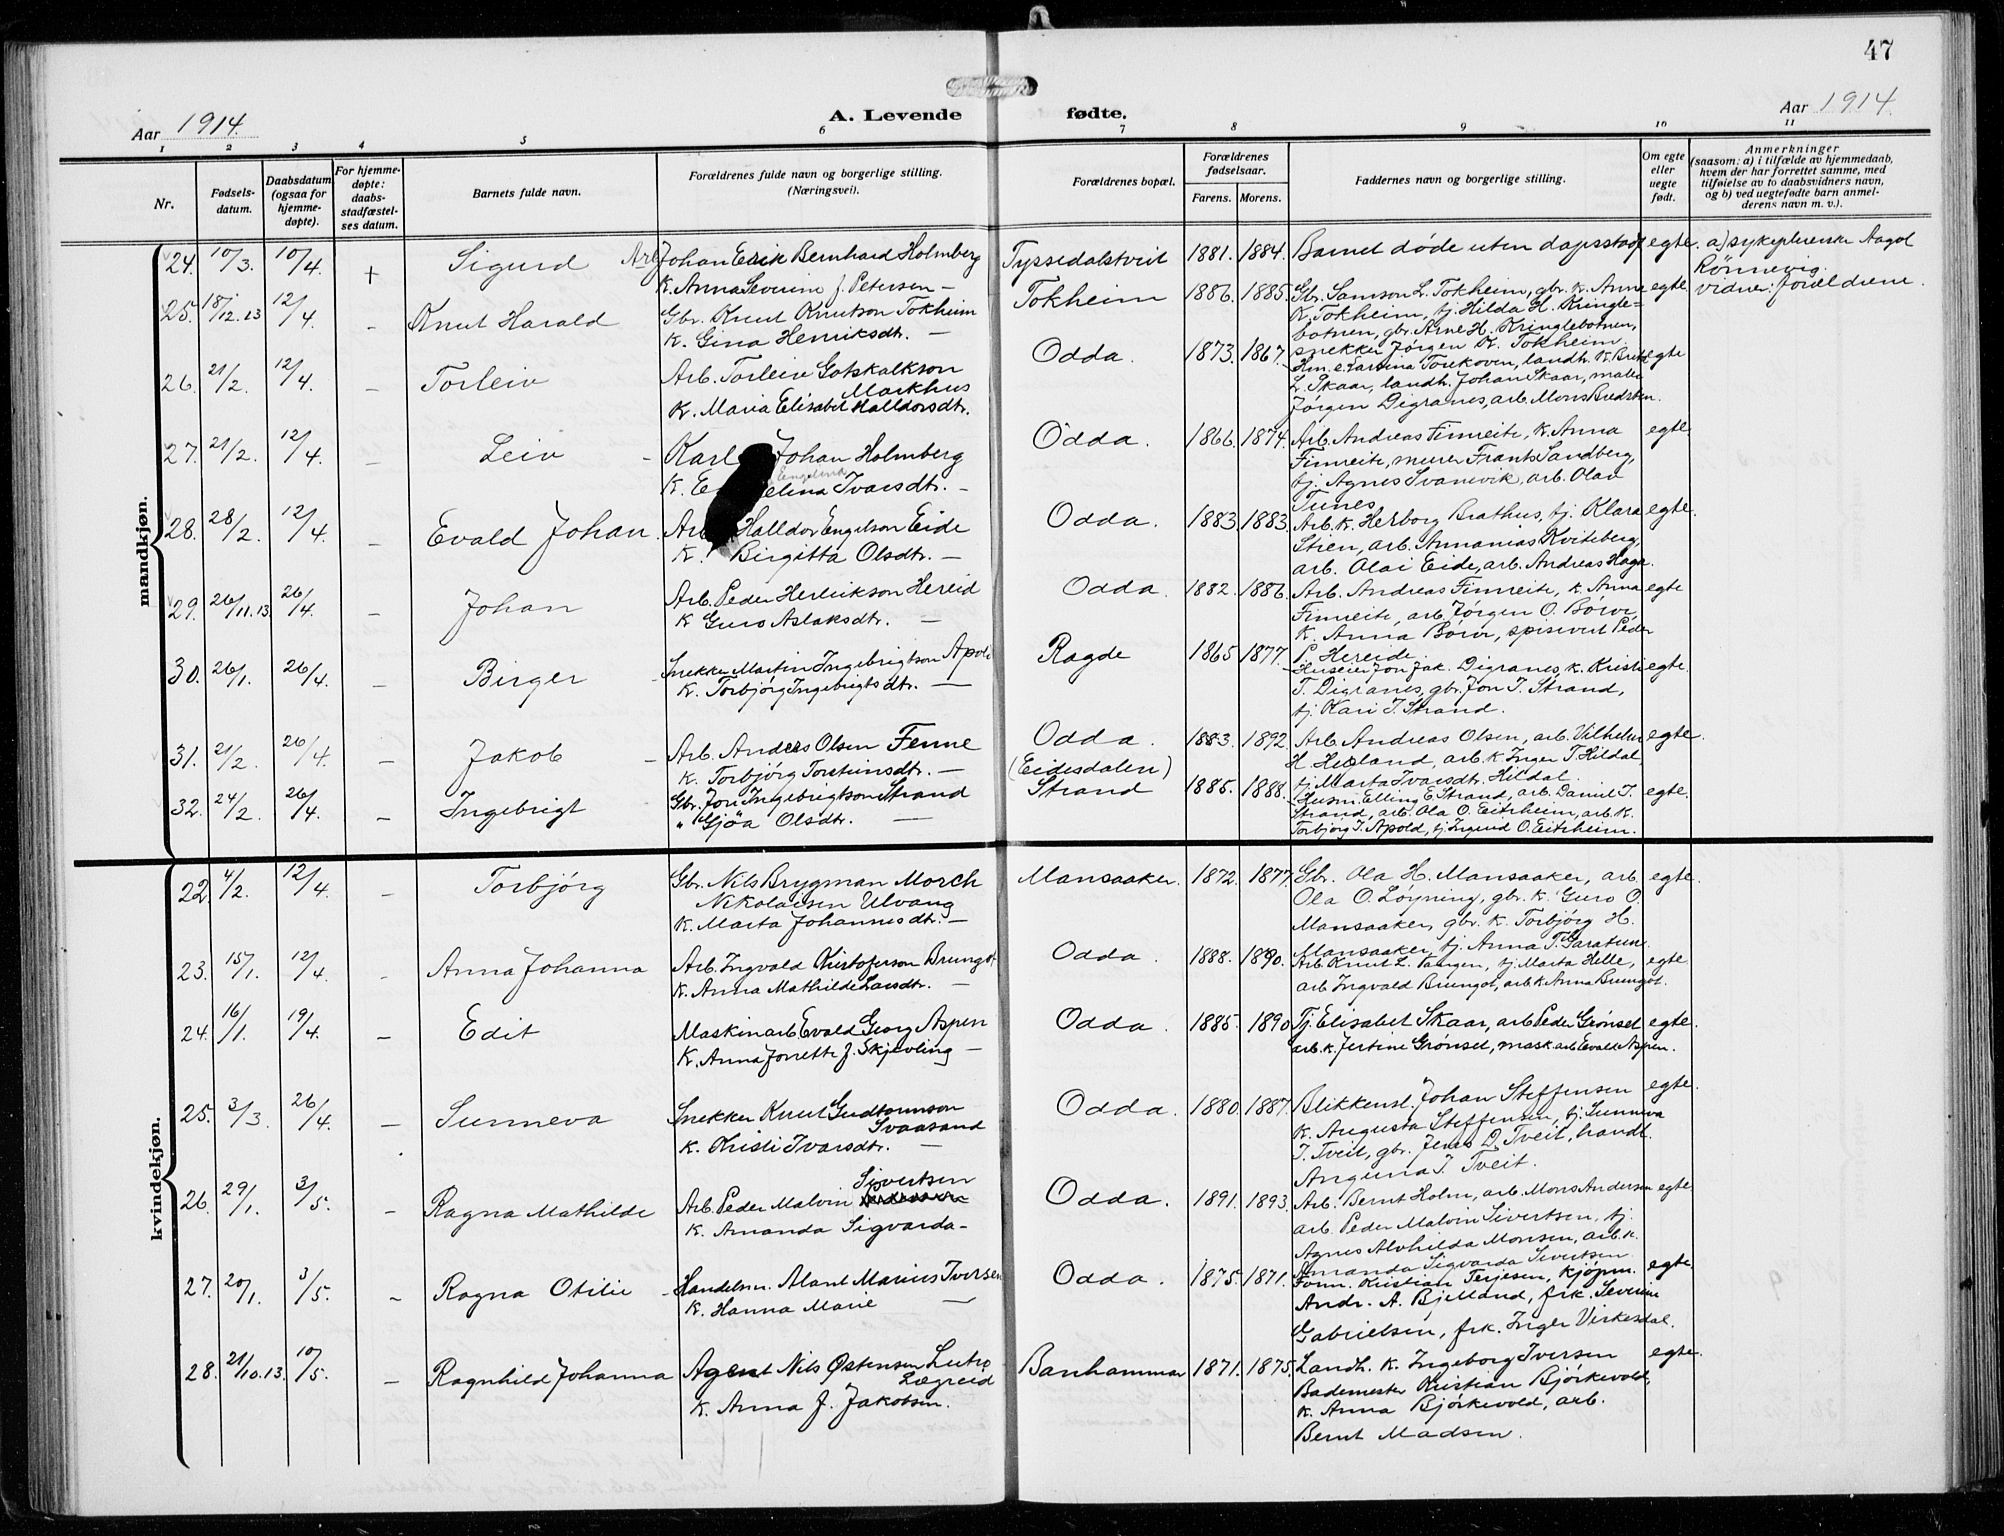 47
Aar 1914.
A. Levende fødte.
Aar 1914.
1 2 3 4 5 6 7 8 9 10 11
Nr.
Fødsels-
datum.
Daabsdatum
(ogsaa for
hjemme-
døpte).
For hjemme-
døpte:
daabs-
stadfæstel-
ses datum.
Barnets fulde navn.
Forældrenes fulde navn og borgerlige stilling.
(Næringsvei).
Forældrenes bopæl.
Forældrenes
fødselsaar.
Farens. Morens.
Faddernes navn og borgerlige stilling.
Om egte
eller
uegte
født.
Anmerkninger
(saasom: a) i tilfælde av hjemmedaab,
hvem der har forrettet samme, med
tilføielse av to daabsvidners navn,
og b) ved uegtefødte barn anmel-
derens navn m. v.).
mandkjøn.
24. 10/3. 10/4. + Sigurd Arb. Johan Erik Bernhard Holmberg Tyssedalstveit 1881. 1884. Barnet døde uten dapsstadf egte. a) sykepleierske Aagot
K. Anna Severine f. Petersen —
Rønnevig.
vidner: forældrene.
25. 18/12.13 12/4. — Knut Harald Gbr. Knut Knutson Tokheim Tokheim 1886. 1885. Gbr. Samson L. Tokheim, gbr. k. Anna egte
K. Gina Henriksdtr. —
K. Tokheim, tj. Hilda H. Kringle-
botnen, gbr. Arne H. Kringlebotnen,
snekker Jørgen K. Tokheim.
26. 21/2. 12/4. — Torleiv Arb. Torleiv Gotskalkson Odda. 1873. 1867. egte
Markhus
K. Maria Elisabet Halldorsdtr.
L. Skaar, landh. Johan Skaar, maler
Jørgen Digranes, arb. Mons Bredsten.
27. 21/2. 12/4. — Leiv Karl Johan Holmberg Odda. 1866. 1874. Arb. Andreas Finreite, k. Anna egte.
Engelina
K. E elina Ivarsdtr. —
Finreite, murer Frank Sandberg,
tj. Agnes Svanevik, arb. Olav
Tunes.
28. 28/2. 12/4. — Evald Johan. Arb. Halldor Engelson Eide Odda. 1883. 1883. Arb. k. Herborg Brathus, tj. Klara egte.
K. Birgitta Olsdtr. —
Stien, arb. Annanias Kviteberg,
arb. Olai Eide, arb. Andreas Haga.
29. 26/11.13. 26/4. — Johan Arb. Peder Henrikson Hereid Odda. 1882. 1886. Arb. Andreas Finreite, k. Anna egte
K Guro Aslaksdtr. —
Finreite, arb. Jørgen O. Børve,
K. Anna Børve, spisevert Peder
P. Hereide.
30. 26/1. 26/4. — Birger Snekker Martin Ingebrigtson Apold Ragde 1865 1877. Huseier Jon Jak. Digranes, k. Kristi egte.
K. Torbjørg Ingebrigtsdtr. —
T. Digranes, gbr. Jon T. Strand,
tj. Kari T. Strand.
31. 21/2. 26/4. — Jakob Arb. Anders Olsen Fenne Odda. 1883. 1892. Arb. Andreas Olsen, arb. Vilhelm egte.
K. Torbjørg Torsteinsdtr. — (Eidesdalen)
H. Heland, arb. k Inger T. Hildal,
tj. Marta Ivarsdtr. Hildal.
32. 24/2. 26/4. — Ingebrigt Gbr. Jon Ingebrigtson Strand Strand 1885. 1888. Husm. Elling E. Strand, arb. Daniel T. egte.
" Gjøa Olsdtr. —
Strand, arb. Ola O. Eitrheim, arb. k.
Torbjørg I. Apold, tj. Ingerid O. Eitrheim.
kvindekjøn.
22. 4/2. 12/4. — Torbjørg Gbr. Nils Brygman Morch Mansaaker. 1872. 1877. Gbr. Ola H. Mansaaker, arb. egte.
Nikolaisen Ulvang
K. Marta Johannesdtr. —
Ola O. Løyning, gbr. k. Guro O.
Mansaaker, gbr. k Torbjørg H.
Mansaaker, tj. Anna T. Garatun.
23. 15/1. 12/4. — Anna Johanna Arb. Ingvald Kristoferson Brungot Odda. 1888. 1890. Arb. Knut L. Vangen, tj. Marta Helle, egte
K. Anna Mathilde Larsdtr. —
arb Ingvald Brungot, arb. k Anna Brungot.
24. 16/1. 19/4. — Edit Maskinarb. Evald Georg Aspen Odda. 1885. 1890 Tj. Elisabet Skaar, arb. Peder Grønset egte.
K. Anna Jonette f. Skjevling —
arb. k. Jertine Grønset, mask. arb. Evald Aspen.
25. 3/3. 26/4. — Sunneva Snekker Knut Gudtormson Odda. 1880. 1887. Blikkensl. Johan Steffensen egte.
Svaasand
K. Kristi Ivarsdtr. —
K. Augusta Steffensen, tj. Sunneva
I. Tveit, gbr. Jens D. Tveit, handl.
Anguna I. Tveit.
26. 29/1. 3/5. — Ragna Mathilde Arb. Peder Malvin Sivertsen Odda. 1891. 1893. Arb. Bernt Holm, arb. Mons Andersen egte
K. Amanda Sigvarda —
arb. Peder Malvin Sivertsen, tj.
Agnes Alvhilda Monsen, arb. k.
Amanda Sigvarda Sivertsen
27. 20/1. 3/5. — Ragna Otilie Handelsm. Alant Marius Iversen Odda. 1875. 1871. Form. Kristian Terjesen, kjøpm. egte.
K. Hanna Marie —
Andr. A. Bjelland, frk. Severine
Gabrielsen, frk. Inger Virkesdal.
28. 21/10.13. 10/5. — Ragnhild Johanna Agent Nils Østensen Lutro Banhammar 1871. 1875. Landh. k. Ingeborg Iversen egte.
Lægreid
K. Anna J. Jakobsen.
Bademester Kristian Bjørkevold,
K. Anna Bjørkevold, arb.
Bernt Madsen.